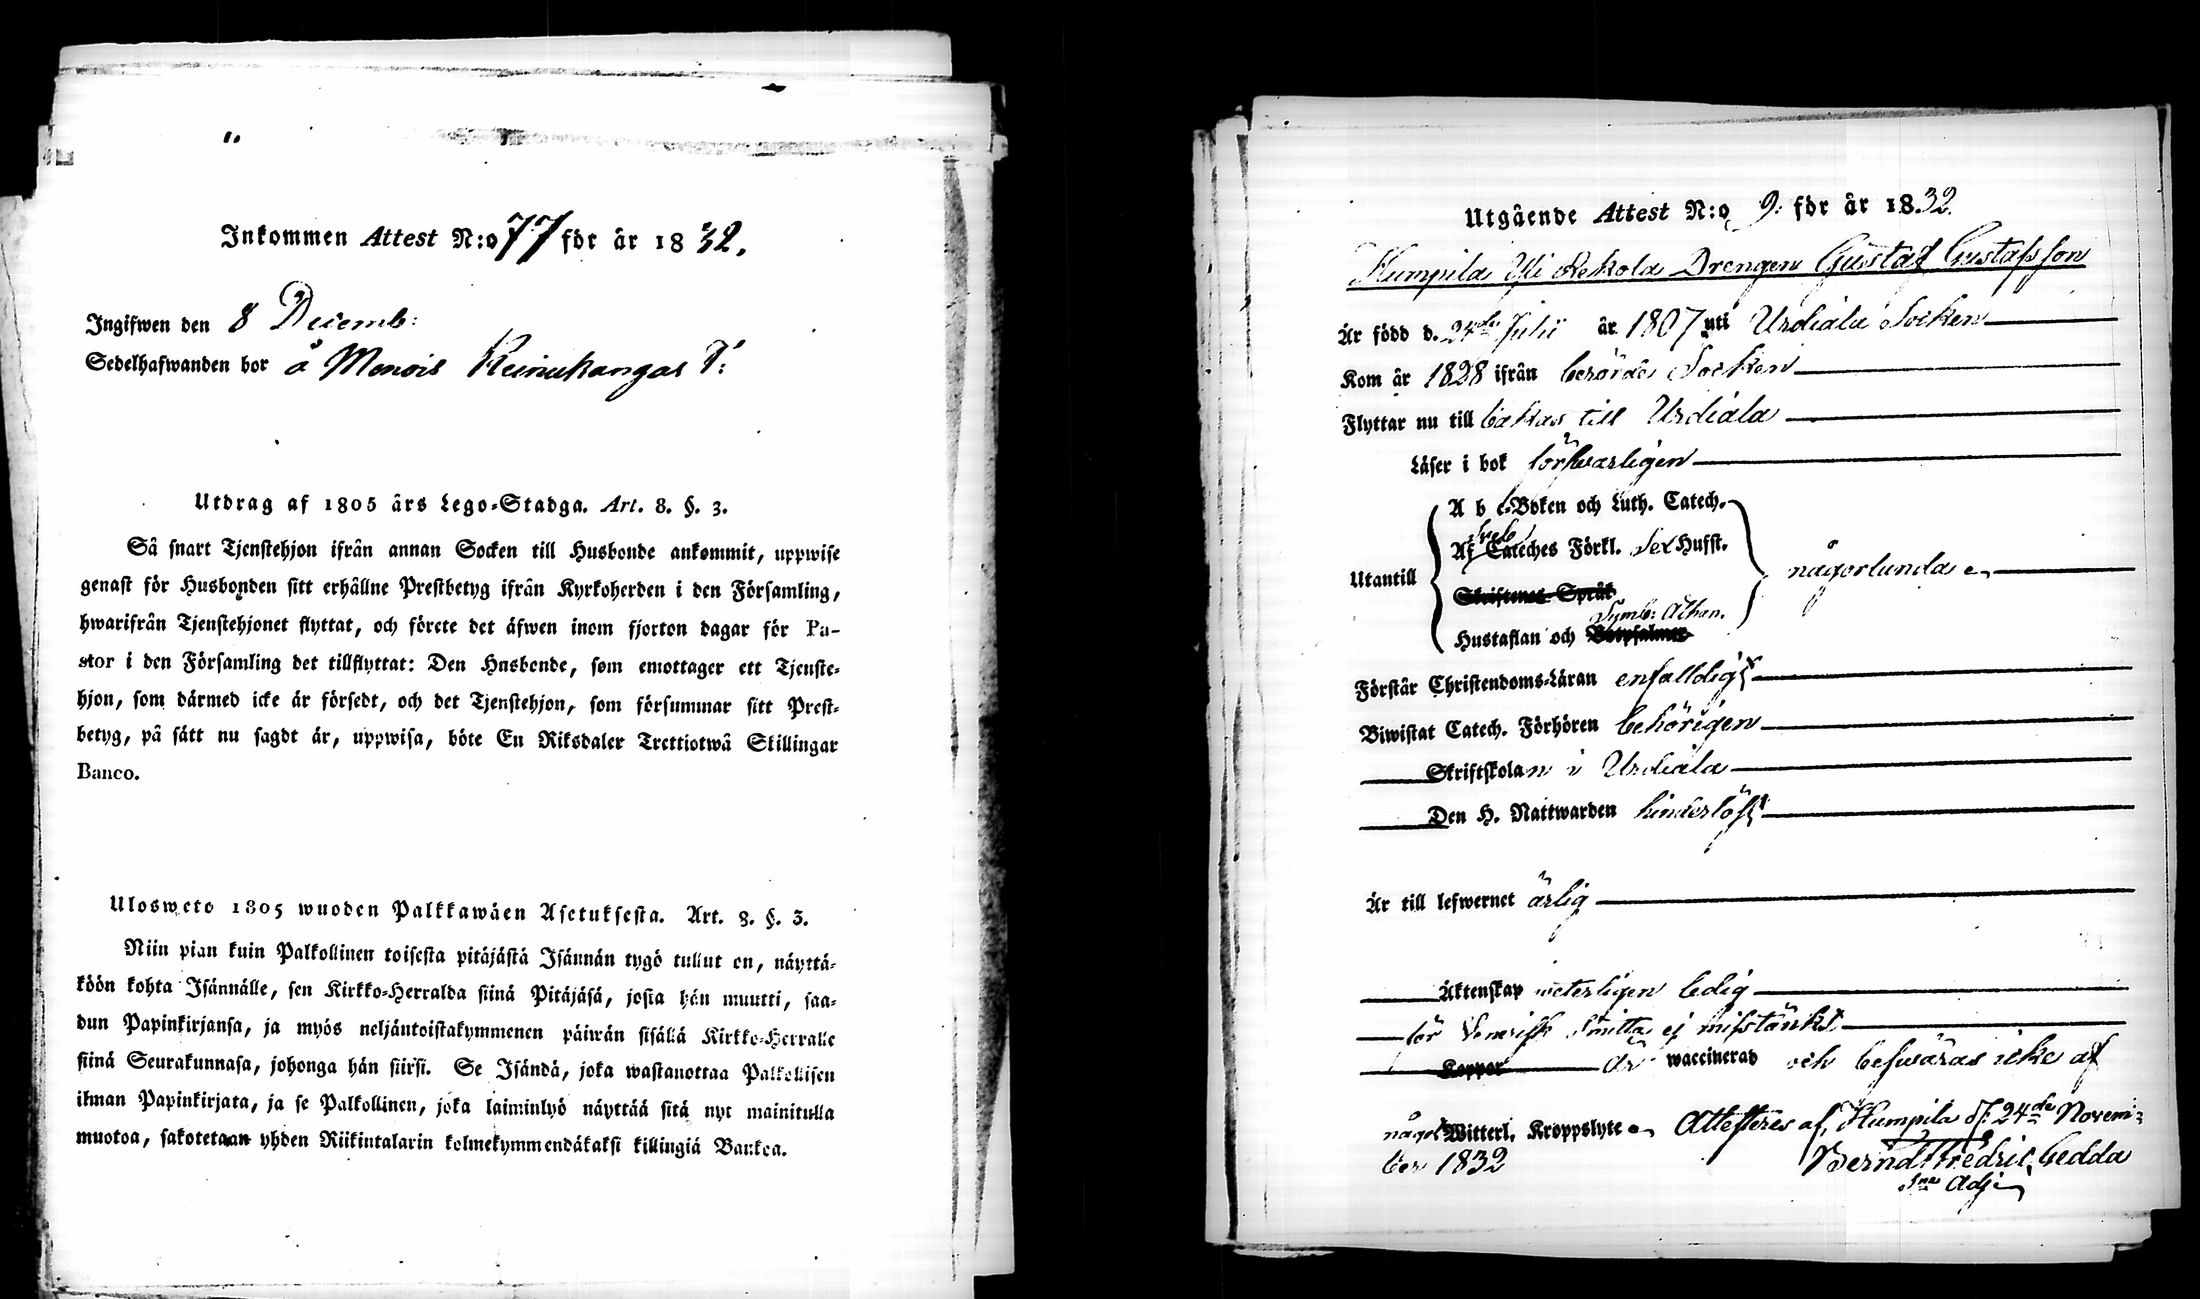 Inkommen Attest N:o 77 för år 1832.
Ingifwen den 8 Decemb:
Sedelhafwanden bor å Menois Keinukangas T:
Utdrag af 1805 års Lego-Stadga. Art. 8. §. 3.
Så snart Tjenstehjon ifrån annan Socken till Husbonde ankommit, uppwise
genast för Husbonden sitt erhållne Prestbetyg ifrån Kyrkoherden i den Församling,
hwarifrån Tjenstehjonet flyttat, och förete det äfwen inom fjorton dagar för Pa-
stor i den Församling det tillflyttat: Den Husbonde, som emottager ett Tjenste-
hjon, som därmed icke är försedt, och det Tjenstehjon, som försummar sitt Prest-
betyg, på sätt nu sagdt är, uppwisa, böte En Riksdaler Trettiotwå Skillingar
Banco.
Ulosweto 1805 wuoden Palkkawäen Asetuksesta. Art. 8. §. 3.
Niin pian kuin Palkollinen toisesta pitäjästä Isännän tygö tullut on, näyttä-
köön kohta Isännälle, sen Kirkko-Herralda siinä Pitäjäsä, josta hän muutti, saa-
dun Papinkirjansa, ja myös neljäntoistakymmenen päiwän sisällä Kirkko-Herralle
siinä Seurakunnasa, johonga hän siirsi. Se Isändä, joka wastanottaa Palkollisen
ilman Papinkirjata, ja se Palkollinen, joka laiminlyö näyttää sitä nyt mainitulla
muotoa, sakotetaan yhden Riikintalarin kolmekymmendäkaksi killingiä Bankoa.
Utgående Attest N:o 9: för år 1832.
Humpila Yli Rekola Drengen Gustaf Gustafsson
Är född d. 24de Julii år 1807 uti Urdiala Socken
Kom år 1828 ifrån berörde Socken
Flyttar nu till bakas till Urdiala
Läser i bok förswarligen
A b c-Boken och Luth. Catech.
Af Sveb Cateches Förkl. Sex Husst.
Utantill någorlunda
Skriftenes Språk
Symb: Athan.
Hustaflan och Botpsalmer
Förstår Christendoms-Läran enfalldigt
Biwistat Catech. Förhören behörigen
Skriftskolan i Urdiala
Den H. Nattwarden hinderlöst
Är till lefwernet ärlig
Äktenskap weterligen ledig
för Venerisk Smitta ej misstänkt
Koppor är waccinerad och beswäras icke af
något Witterl. Kroppslyte Attesteras af, Humpila d. 24de Novem-
ber 1832 Berndt Fredric Gedda
Sne Adj: